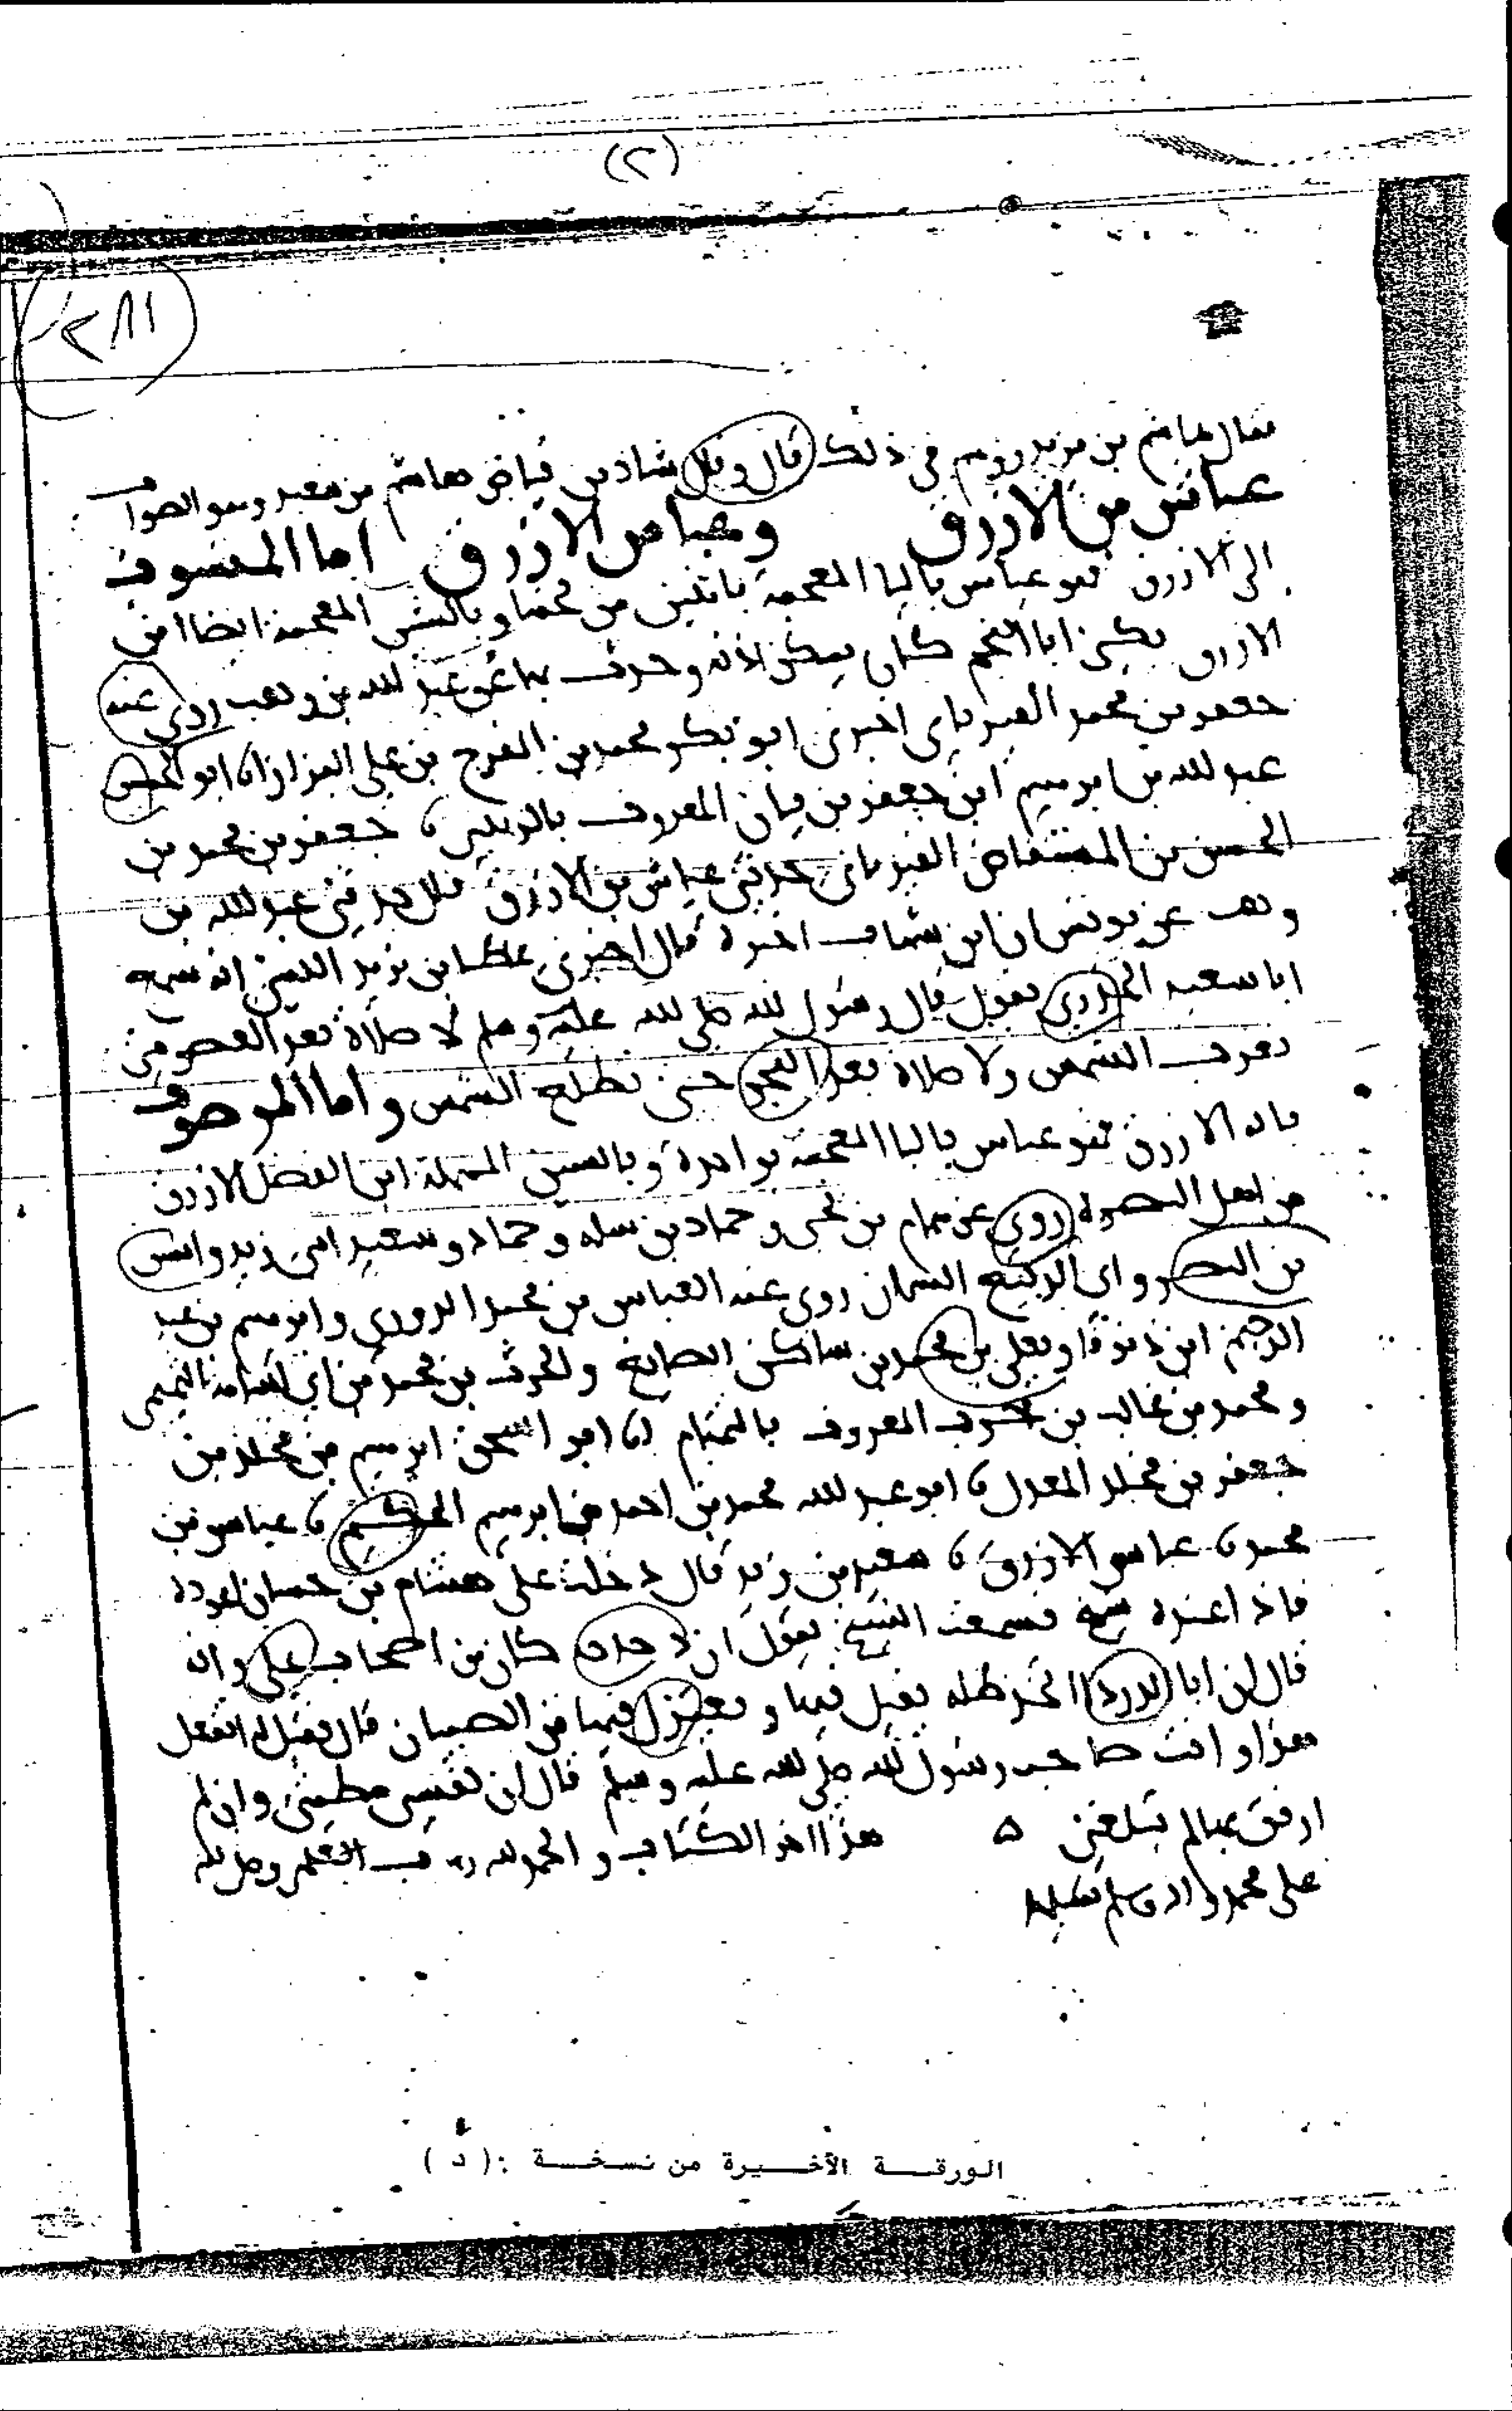 (٢)
(٢٨١
فقال هاشم بن مزيد وهم في ذلك قال وقال شاذ بن فياض هاشم بن سعيد وهو الصواب
عياش بن الازرق وعباس الازرق اما المنسوب
الى الازرق فهو عياش باليا المعجمة باثنتين من تحتها وبالشين المعجمة ايضا ابن
الازرق يكنى ابا النجم كان يسكن اذنه وحدث بها عن عبد الله بن وهب روى عنه
جعفر بن محمد الفريابي اخبرني ابو بكر محمد بن الفرج بن علي البزاز انا ابو الحسن
عبد الله بن ابرهيم ابن جعفر بن بيان المعروف بالزبيبي نا جعفر بن محمد بن
الحسن بن المستفاض الفريابي حدثني عياش بن الازرق قال حدثني عبد الله بن
وهب عن يونس ان ابن شهاب اخبره قال اخبرني عطا بن يزيد الليثي انه سمع
ابا سعيد الخدري يقول قال رسول الله صلى الله عليه وسلم لا صلاة بعد العصر حتى
تغرب الشمس ولا صلاة بعد الفجر حتى تطلع الشمس واما الموصوف
بانه الازرق فهو عباس بالبا المعجمة بواحدة وبالسين المهملة ابن الفضل الازرق
من اهل البصرة روى عن همام بن يحيى وحماد بن سلمه وحماد وسعيد ابني زيد وانس
بن النضر وابي الربيع السمان روى عنه العباس بن محمد الدوري وابرهيم بن عبد
الرحيم ابن دنوقا ويعلى بن محمد بن ساكن الصايغ والحرث بن محمد بن ابي اسامه التميمي
ومحمد بن غالب بن حرب المعروف بالتمتام انا ابو اسحق ابرهيم بن مخلد بن
جعفر بن مخلد المعدل نا ابو عبد الله محمد بن احمد بن ابرهيم الحكيمي نا عباس بن
محمد نا عباس الازرق نا سعيد بن زيد قال دخلت على هشام بن حسان اعوده
فاذا عنده شيخ فسمعت الشيخ يقول ان كان من اصحاب علي وانه
قال ان ابا الدردا اتخذ ظله يقيل فيها ويعتزل فيها من الصبيان قال فقيل له اتفعل
هذا وانت صاحب رسول الله صلى الله عليه وسلم قال ان نفسي مطيتي وان لم
ارفق بها لم تبلغني ه هذا اخر الكتاب والحمد لله رب العلمين وصلى الله
على محمد واله وسلم تسليما
الورقة الأخيرة من نسخة : ( د )